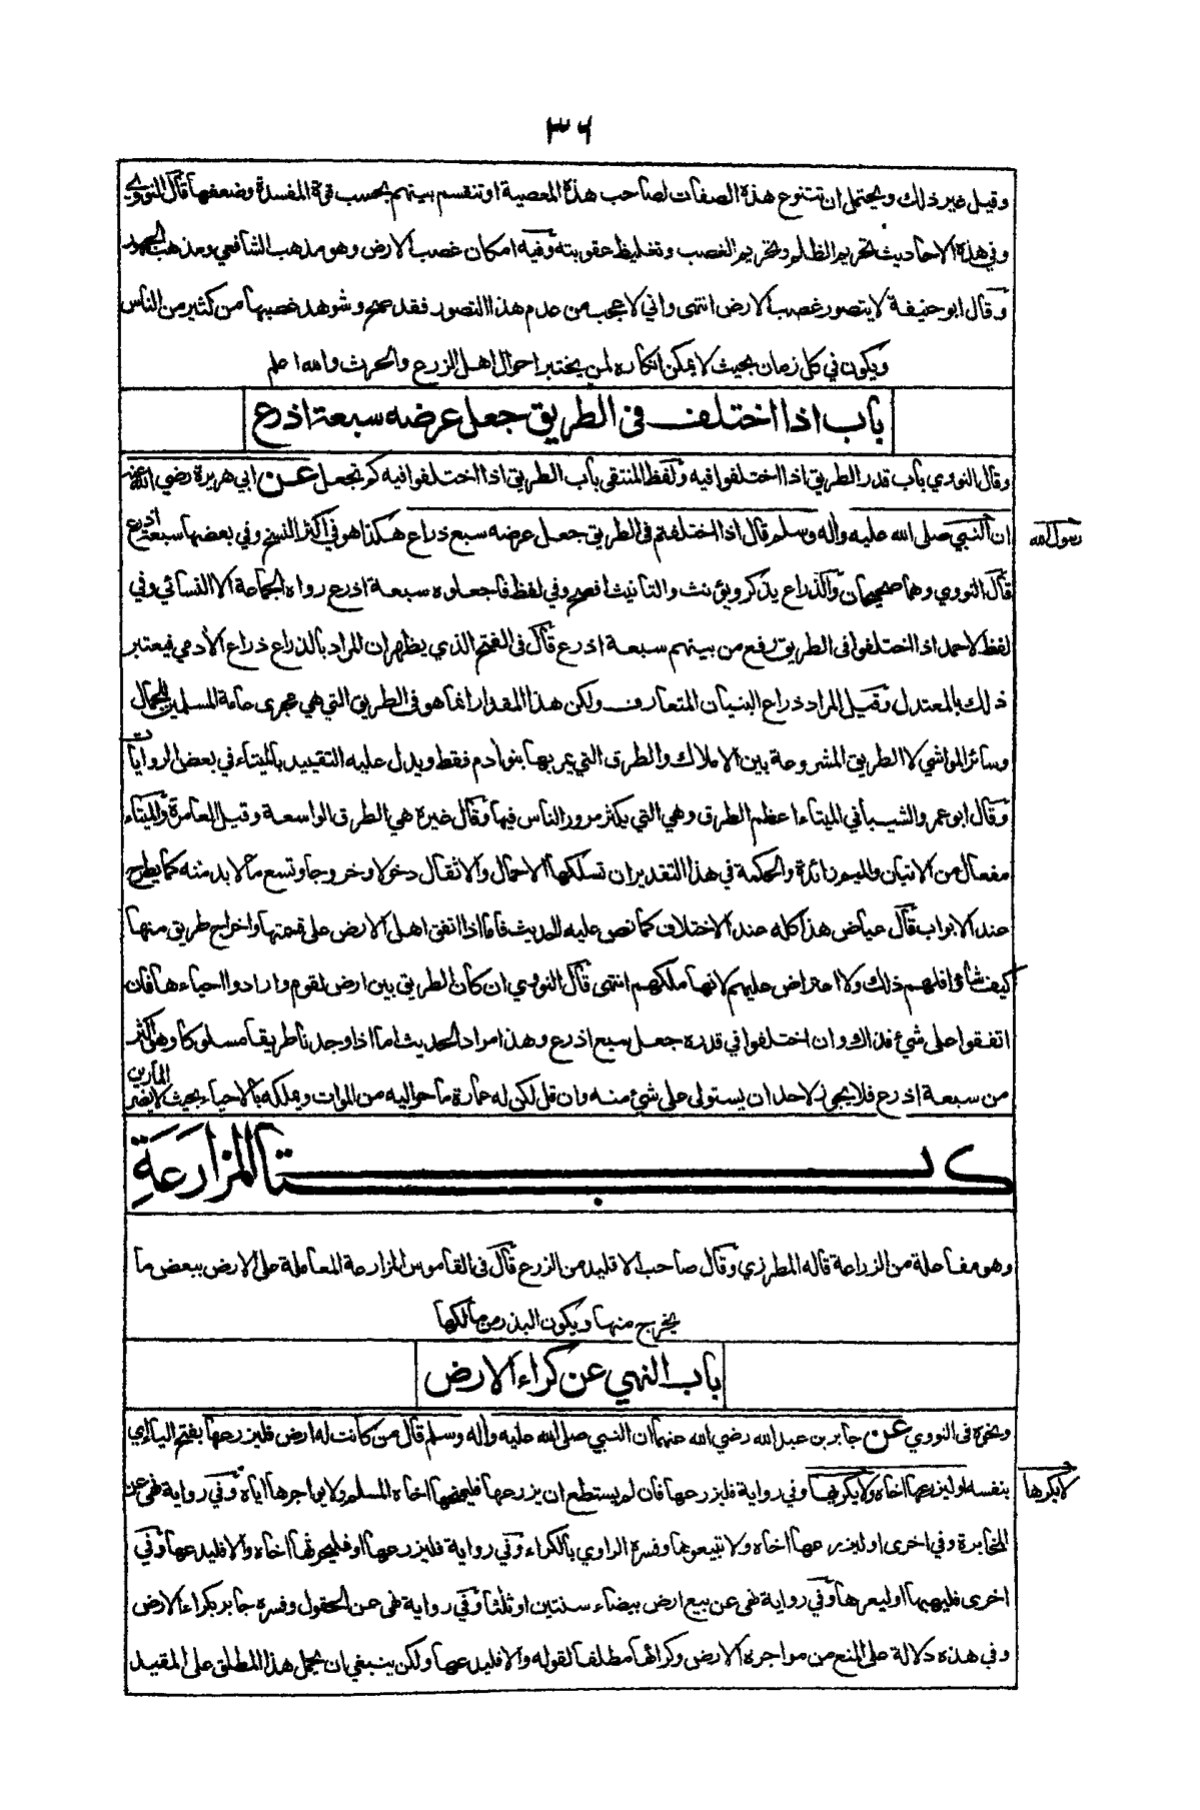 ٣٦
وقيل غير ذلك ويحتمل ان تتنوع هذه الصفات لصاحب هذه المعصية او تنقسم بينهم بحسب قوة المفسدة وضعفها قال النووي
وفي هذه الاحاديث تحريم الظلم وتحريم الغصب وتغليظ عقوبته وفيه امكان غصب الارض وهو مذهب الشافعي ومذهب الجمهور
وقال ابو حنيفة لا يتصور غصب الارض انتهى واني لاعجب من عدم هذا التصور فقد عم وشوهد غصبها من كثير من الناس
ويكون في كل زمان بحيث لا يمكن انكاره لمن يختبر احوال اهل الزرع والحرث والله اعلم
باب اذا اختلف في الطريق جعل عرضه سبعة اذرع
وقال النووي باب قدر الطريق اذا اختلفوا فيه ولفظ المنتقى باب الطريق اذا اختلفوا فيه كم تجعل عن ابي هريرة رضي الله عنه
ان النبي صلى الله عليه وآله وسلم قال اذا اختلفتم في الطريق جعل عرضه سبع ذراع هكذا هو في اكثر النسخ وفي بعضها سبعة اذرع
رسول الله
قال النووي وهما صحيحان والذراع يذكر ويؤنث والتانيث افصح وفي لفظ فاجعلوه سبعة اذرع رواه الجماعة الا النسائي وفي
لفظ لاحمد اذا اختلفوا في الطريق رفع من بينهم سبعة اذرع قال في الفتح الذي يظهر ان المراد بالذراع ذراع الآدمي فيعتبر
ذلك بالمعتدل وقيل المراد ذراع البنيان المتعارف ولكن هذا المقدار انما هو في الطريق التي هي مجرى عامة المسلمين للجمال
وسائر المواشي لا الطريق المشروعة بين الاملاك والطرق التي يمر بها بنو آدم فقط ويدل عليه التقييد بالميتاء في بعض الروايات
وقال ابو عمرو الشيباني الميتاء اعظم الطرق وهي التي يكثر مرور الناس فيها وقال غيره هي الطرق الواسعة وقيل العامرة والميتاء
مفعال من الاتيان والميم زائدة والحكمة في هذا التقدير ان تسلكها الاحمال والاثقال دخولا وخروجا وتسع ما لا بد منه كما يطرح
عند الابواب قال عياض هذا كله عند الاختلاف كما نص عليه الحديث فاما اذا اتفق اهل الارض على قسمتها واخراج طريق منها
كيف شاءوا فلهم ذلك ولا اعتراض عليهم لانها ملكهم انتهى قال النووي ان كان الطريق بين ارض لقوم وارادوا احياءها فان
اتفقوا على شيء فذاك وان اختلفوا في قدره جعل سبع اذرع وهذا مراد الحديث اما اذا وجدنا طريقا مسلوكا وهو اكثر
من سبعة اذرع فلا يجوز لاحد ان يستولى على شيء منه وان قل لكن له عمارة ما حواليه من الموات ويملكه بالاحياء بحيث لا يضر المارين
كتاب المزارعة
وهو مفاعلة من الزراعة قاله المطرزي وقال صاحب الاقليد من الزرع قال في القاموس المزارعة المعاملة على الارض ببعض ما
يخرج منها ويكون البذر من مالكها
باب النهي عن كراء الارض
ونحوه في النووي عن جابر بن عبد الله رضي الله عنهما ان النبي صلى الله عليه وآله وسلم قال من كانت له ارض فليزرعها بفتح الياء اي
بنفسه او ليزرعها اخاه ولا يكريها وفي رواية فليزرعها فان لم يستطع ان يزرعها فليمنحها اخاه المسلم ولا يواجرها اياه وفي رواية نهى عن
لا يكرها
المخابرة وفي اخرى او ليزرعها اخاه ولا تبيعوها وفسره الراوي بالكراء وفي رواية فليزرعها او فليحرثها اخاه والا فليدعها وفي
اخرى فليهبها او ليعرها وفي رواية نهى عن بيع ارض بيضاء سنتين او ثلثا وفي رواية نهى عن الحقول وفسره جابر بكراء الارض
وفي هذه دلالة على المنع من مواجرة الارض وكرائها مطلقا لقوله والا فليدعها ولكن ينبغي ان يحمل هذا المطلق على المقيد